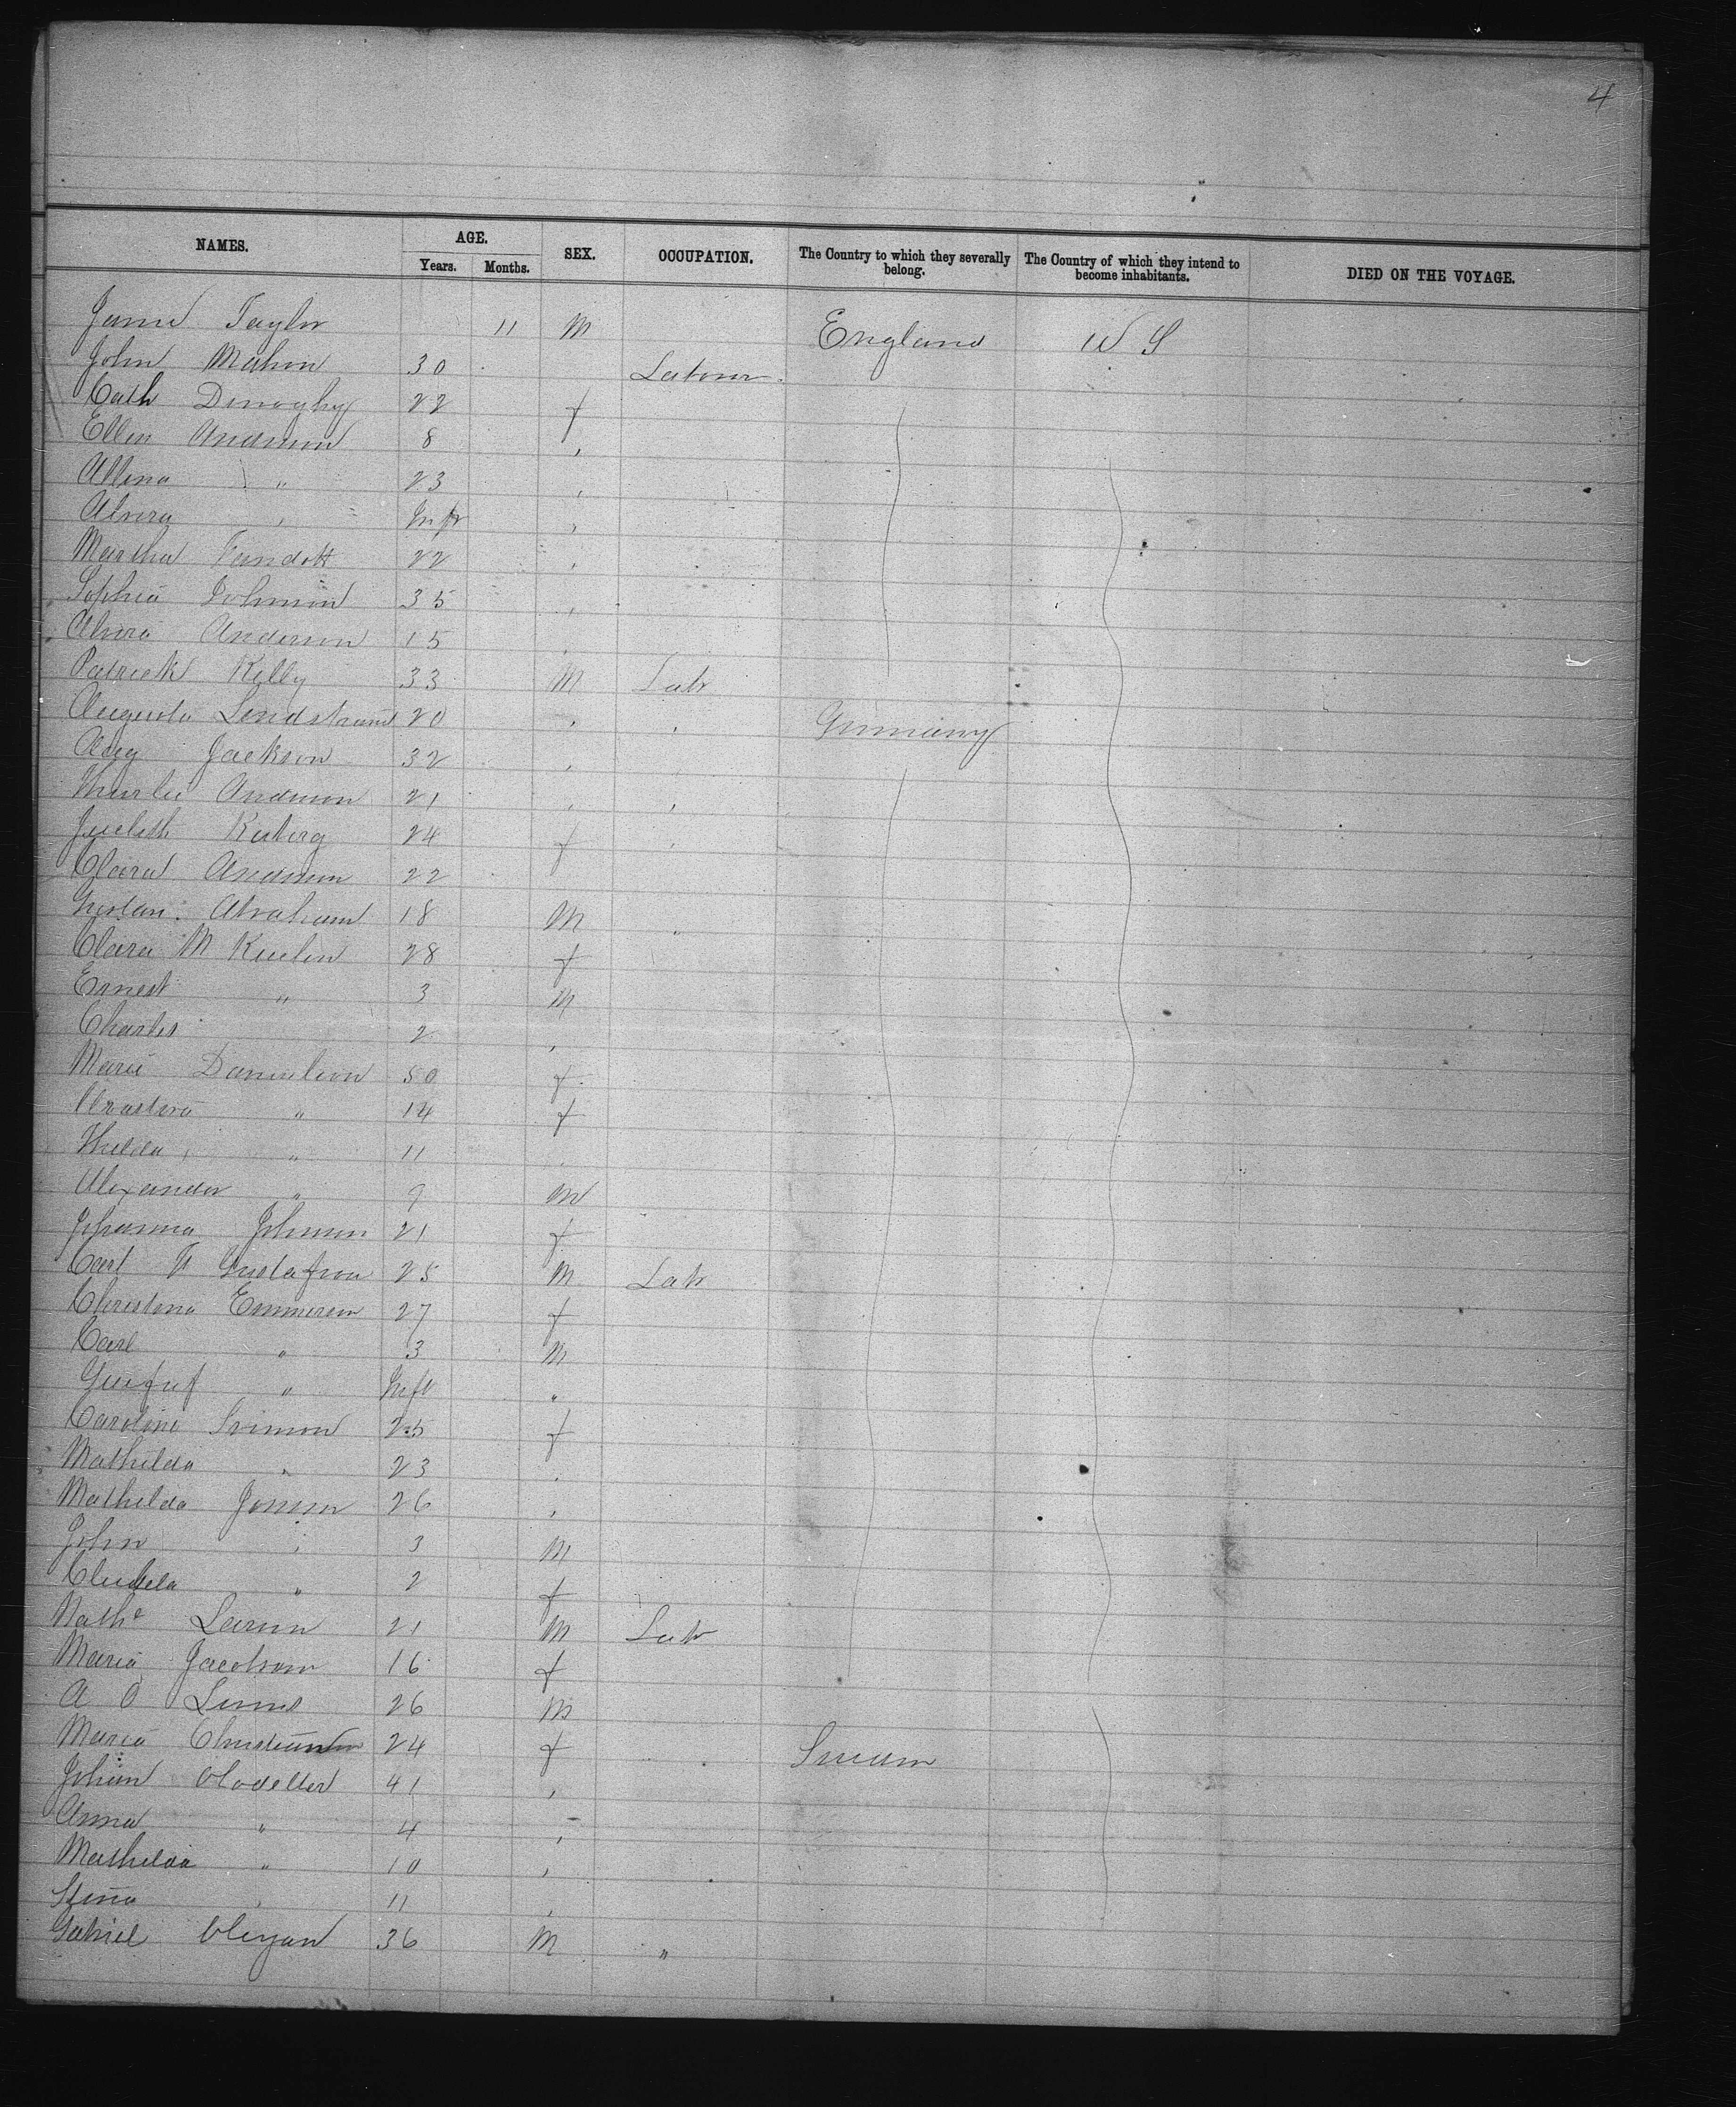 4
NAMES. AGE. SEX. OCCUPATION. The Country to which they severally belong. The Country of which they intend to become inhabitants. DIED ON THE VOYAGE.
Years. Months.
James Taylor 11 M England U S
John Mahon 30 Labour
Cath Donoghy 22 f
Ellen Anderson 8 "
" 23 "
Alvira " Inft "
Martha 22 "
Sophia Johnson 35 "
Alvira Anderson 15
Patrick Kelly 33 M Labr
Augusta Lindstrand 20 " " Germany
Aug Jackson 32 "
Anderson 21 " "
Judith 24 f "
Clara Anderson 22
Gustav. Abraham 18 M "
Clara M 28 f
Ernest " 3 M
Charles 2 "
Maria Danielson 50 f
" 14 f
Hilda " 11
Alexander " 9 M
Johanna Johnson 21 f
Carl F Gustafson 25 M Labr
Christina Emmerson 27 f
Carl " 3 M
" Inft "
Caroline 25 f
Mathilda " 23 "
Mathilda Jonson 26 "
John " 3 M
" 2 f
Larson 21 M Labr
Maria Jacobson 16 f
A O 26 M
Maria 24 f Sweden
41 "
Anna " 4 "
Mathilda " 10 "
Stina " 11 "
Gabriel 36 M "